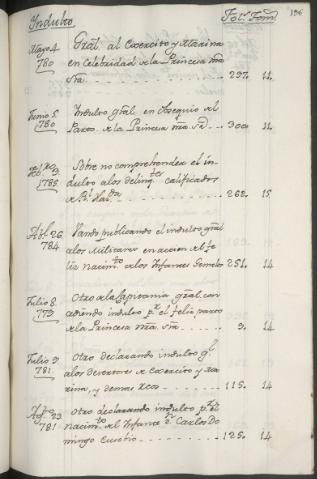 Indulto
Fol.s Tom.s
196
Mayo 4 Gral. al Exercito y Marina
780 en Celebridad de la Princesa nra
Sra. 297. 11.
Junio 5. Indulto gral en obsequio del
780 Parto de la Princesa nra Sra. 300. 11.
3. Sobre no comprehender el in-
1785. dulto a los delinq.tes calificados
de Rl. Hazda 262. 15
26. Vando publicando el indulto gral
784. a los Militares en accion del fe
liz Nacim.to de los Infantes Gemelos 251. 14
Julio 8. Otro de la Capitania gral. con
779. cediendo indulto p.r el feliz parto
de la Princesa nra Sra 9. 14
Julio 9. Otro declarando indulto gl
781. a los desertores de Exercito y Ma
rina, y demas Reos 115. 14
23 Otro declarando indulto p.r el
781 nacim.to del Infante Dn. Carlos Do
mingo Eusebio 125. 14